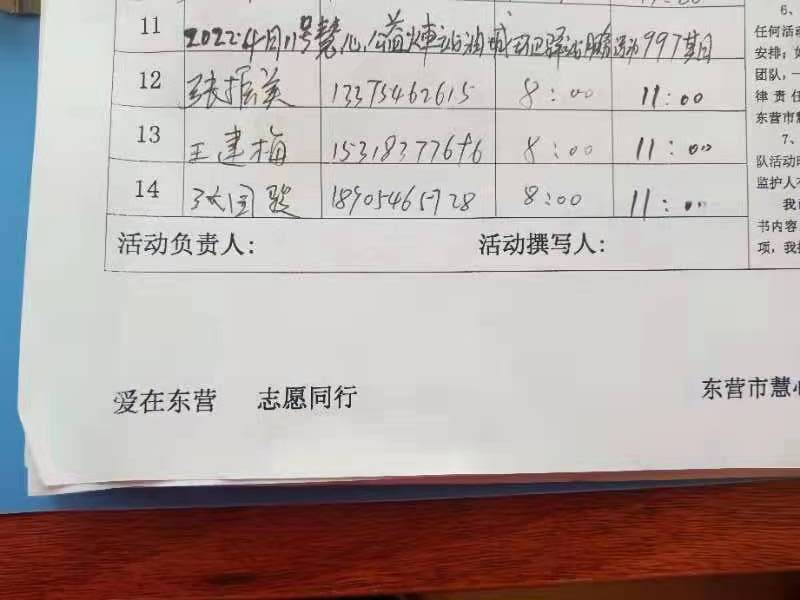 11 2022.4月11号慧心公益火车站油城环卫驿站服务活动997期
12 张振美 13375462615 8:00 11:00
13 王建梅 15318377676 8:00 11:00
14 张国 18905465728 8:00 11:00
活动负责人: 活动撰写人:
爱在东营 志愿同行
东营市慧心
6、
任何活动
安排;如
团队,一
律责任
东营市慧
7、
队活动时
监护人
我
书内容
项,我